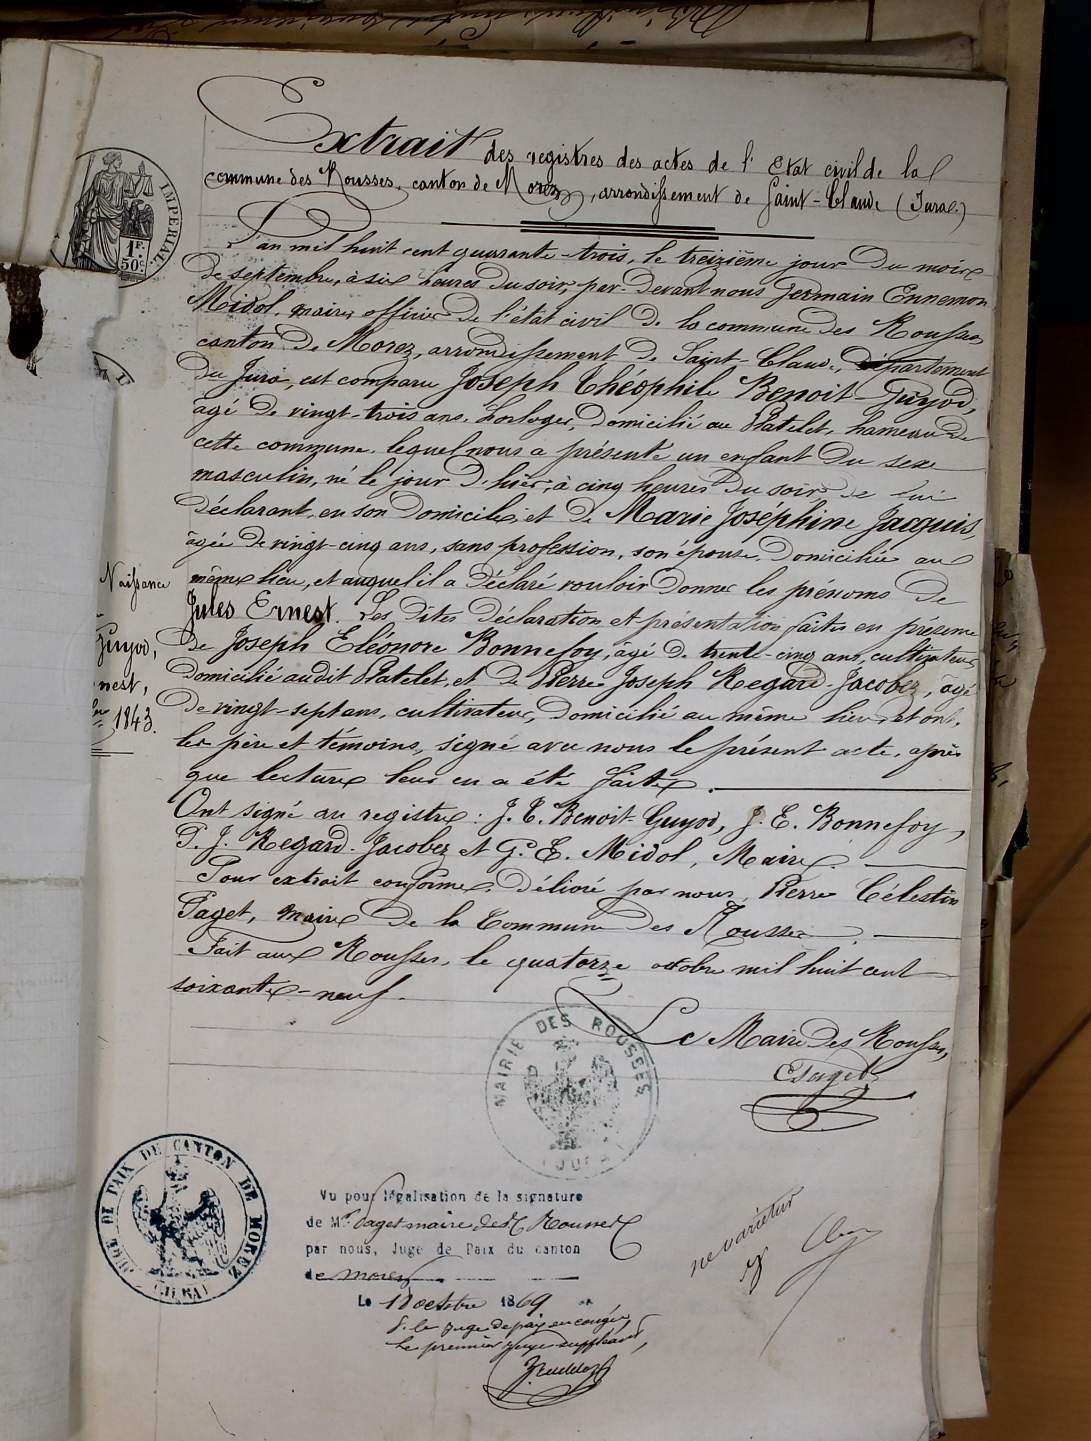 Extrait des registres des actes de l'Etat civil de la
commune des Rousses, canton de Morez, arrondissement de Saint-Claude (Jura.)
IMPERIAL
1 F.
50 c.
L'an mil huit cent quarante-trois, le treizième jour du mois
de septembre, à six heures du soir, par-devant nous Germain Ennemon
Midol, maire, officier de l'état civil de la commune des Rousses
canton de Morez, arrondissement de Saint-Claude, département
du Jura, est comparu Joseph Théophile Benoit-Guyod,
âgé de vingt-trois ans, horloger, domicilié au Platelet, hameau de
cette commune, lequel nous a présenté un enfant du sexe
masculin, né le jour d'hier, à cinq heures du soir de lui
déclarant, en son domicile, et de Marie Joséphine Jacquis,
âgée de vingt-cinq ans, sans profession, son épouse, domiciliée au
même lieu, et auquel il a déclaré vouloir donner les prénoms de
Jules Ernest. Les dites déclaration et présentation faites en présence
de Joseph Eléonore Bonnefoy, âgé de trente-cinq ans, cultivateur,
domicilié audit Platelet, et de Pierre Joseph Regard-Jacobez, âgé
de vingt-sept ans, cultivateur, domicilié au même lieu. Et ont,
les père et témoins, signé avec nous le présent acte, après
que lecture leur en a été faite.
Naissance
Guyod,
nest,
1843.
Ont signé au registre : J. T. Benoit-Guyod, J. E. Bonnefoy,
P. J. Regard-Jacobez et G. E. Midol, Maire.
Pour extrait conforme délivré par nous, Pierre Célestin
Paget, maire de la Commune des Rousses.
Fait aux Rousses, le quatorze octobre mil huit cent
soixante-neuf.
Le Maire des Rousses,
C Paget
MAIRIE DES ROUSSES
(JURA)
JUGE DE PAIX DE CANTON DE MOREZ
(JURA)
Vu pour légalisation de la signature
de Mr Paget maire des Rousses
par nous, Juge de Paix du canton
de Morez
Le 18 octobre 1869
P. le juge de paix en congé,
Le premier juge suppléant,
ne varietur